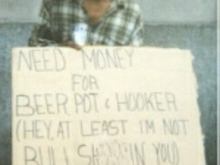 NEED MONEY
FOR
BEER POT & HOOKER
(HEY, AT LEAST I'M NOT
BULL IN YOU)